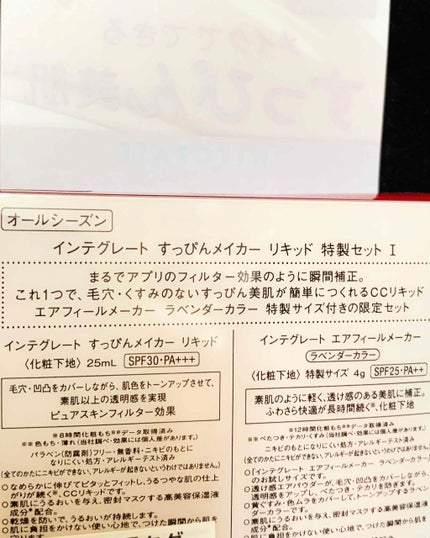 メイクでできる
すっぴん美肌
オールシーズン
インテグレート すっぴんメイカー リキッド 特製セット I
まるでアプリのフィルター効果のように瞬間補正。
これ1つで、毛穴・くすみのないすっぴん美肌が簡単につくれるCCリキッド
エアフィールメーカー ラベンダーカラー 特製サイズ付きの限定セット
インテグレート すっぴんメイカー リキッド
〈化粧下地〉 25mL SPF30・PA+++
毛穴・凹凸をカバーしながら、肌色をトーンアップさせて、
素肌以上の透明感を実現
ピュアスキンフィルター効果
※8時間化粧もち※※データ取得済み
※※色もち・薄れ(当社調べ・効果には個人差があります。)
パラベン(防腐剤)フリー・無香料・ニキビのもとに
なりにくい処方・アレルギーテスト済み
(全てのかたにニキビができない、アレルギーが起きないというわけではありません。)
○なめらかに伸びてピタッとフィットし、うるつやな肌の仕上
がりが続く※、CCリキッドです。
○素肌にうるおいを与え、密封マスクする高美容保湿液
成分※配合。
○乾燥を防いで、うるおいが持続します。
○肌に負担をかけない使い心地で、つけた瞬間から肌を
インテグレート エアフィールメーカー
ラベンダーカラー
〈化粧下地〉 特製サイズ 4g SPF25・PA++
素肌のように軽く、透け感のある美肌に補正。
ふわさら快適が長時間続く※、化粧下地
※12時間化粧もち※※データ取得済み
※※べたつき・テカリ・くすみ(当社調べ・効果には個人差があります。)
ニキビのもとになりにくい処方・アレルギーテスト済み
(全てのかたにニキビができない、アレルギーが起きないというわけではありません。)
○「インテグレート エアフィールメーカー ラベンダーカラー」
のお試しサイズです。
○透け感エアパウダーが、毛穴・凹凸をカバーしながら
透明感をアップし、べたつき・テカリを防ぎます。
○黄ぐすみ・色ムラをカバーしてトーンアップするラベン
ダーカラーです。
○素肌にうるおいを与え、密封マスクする高美容保湿液
成分※配合。
○肌に負担をかけない使い心地で、つけた瞬間から